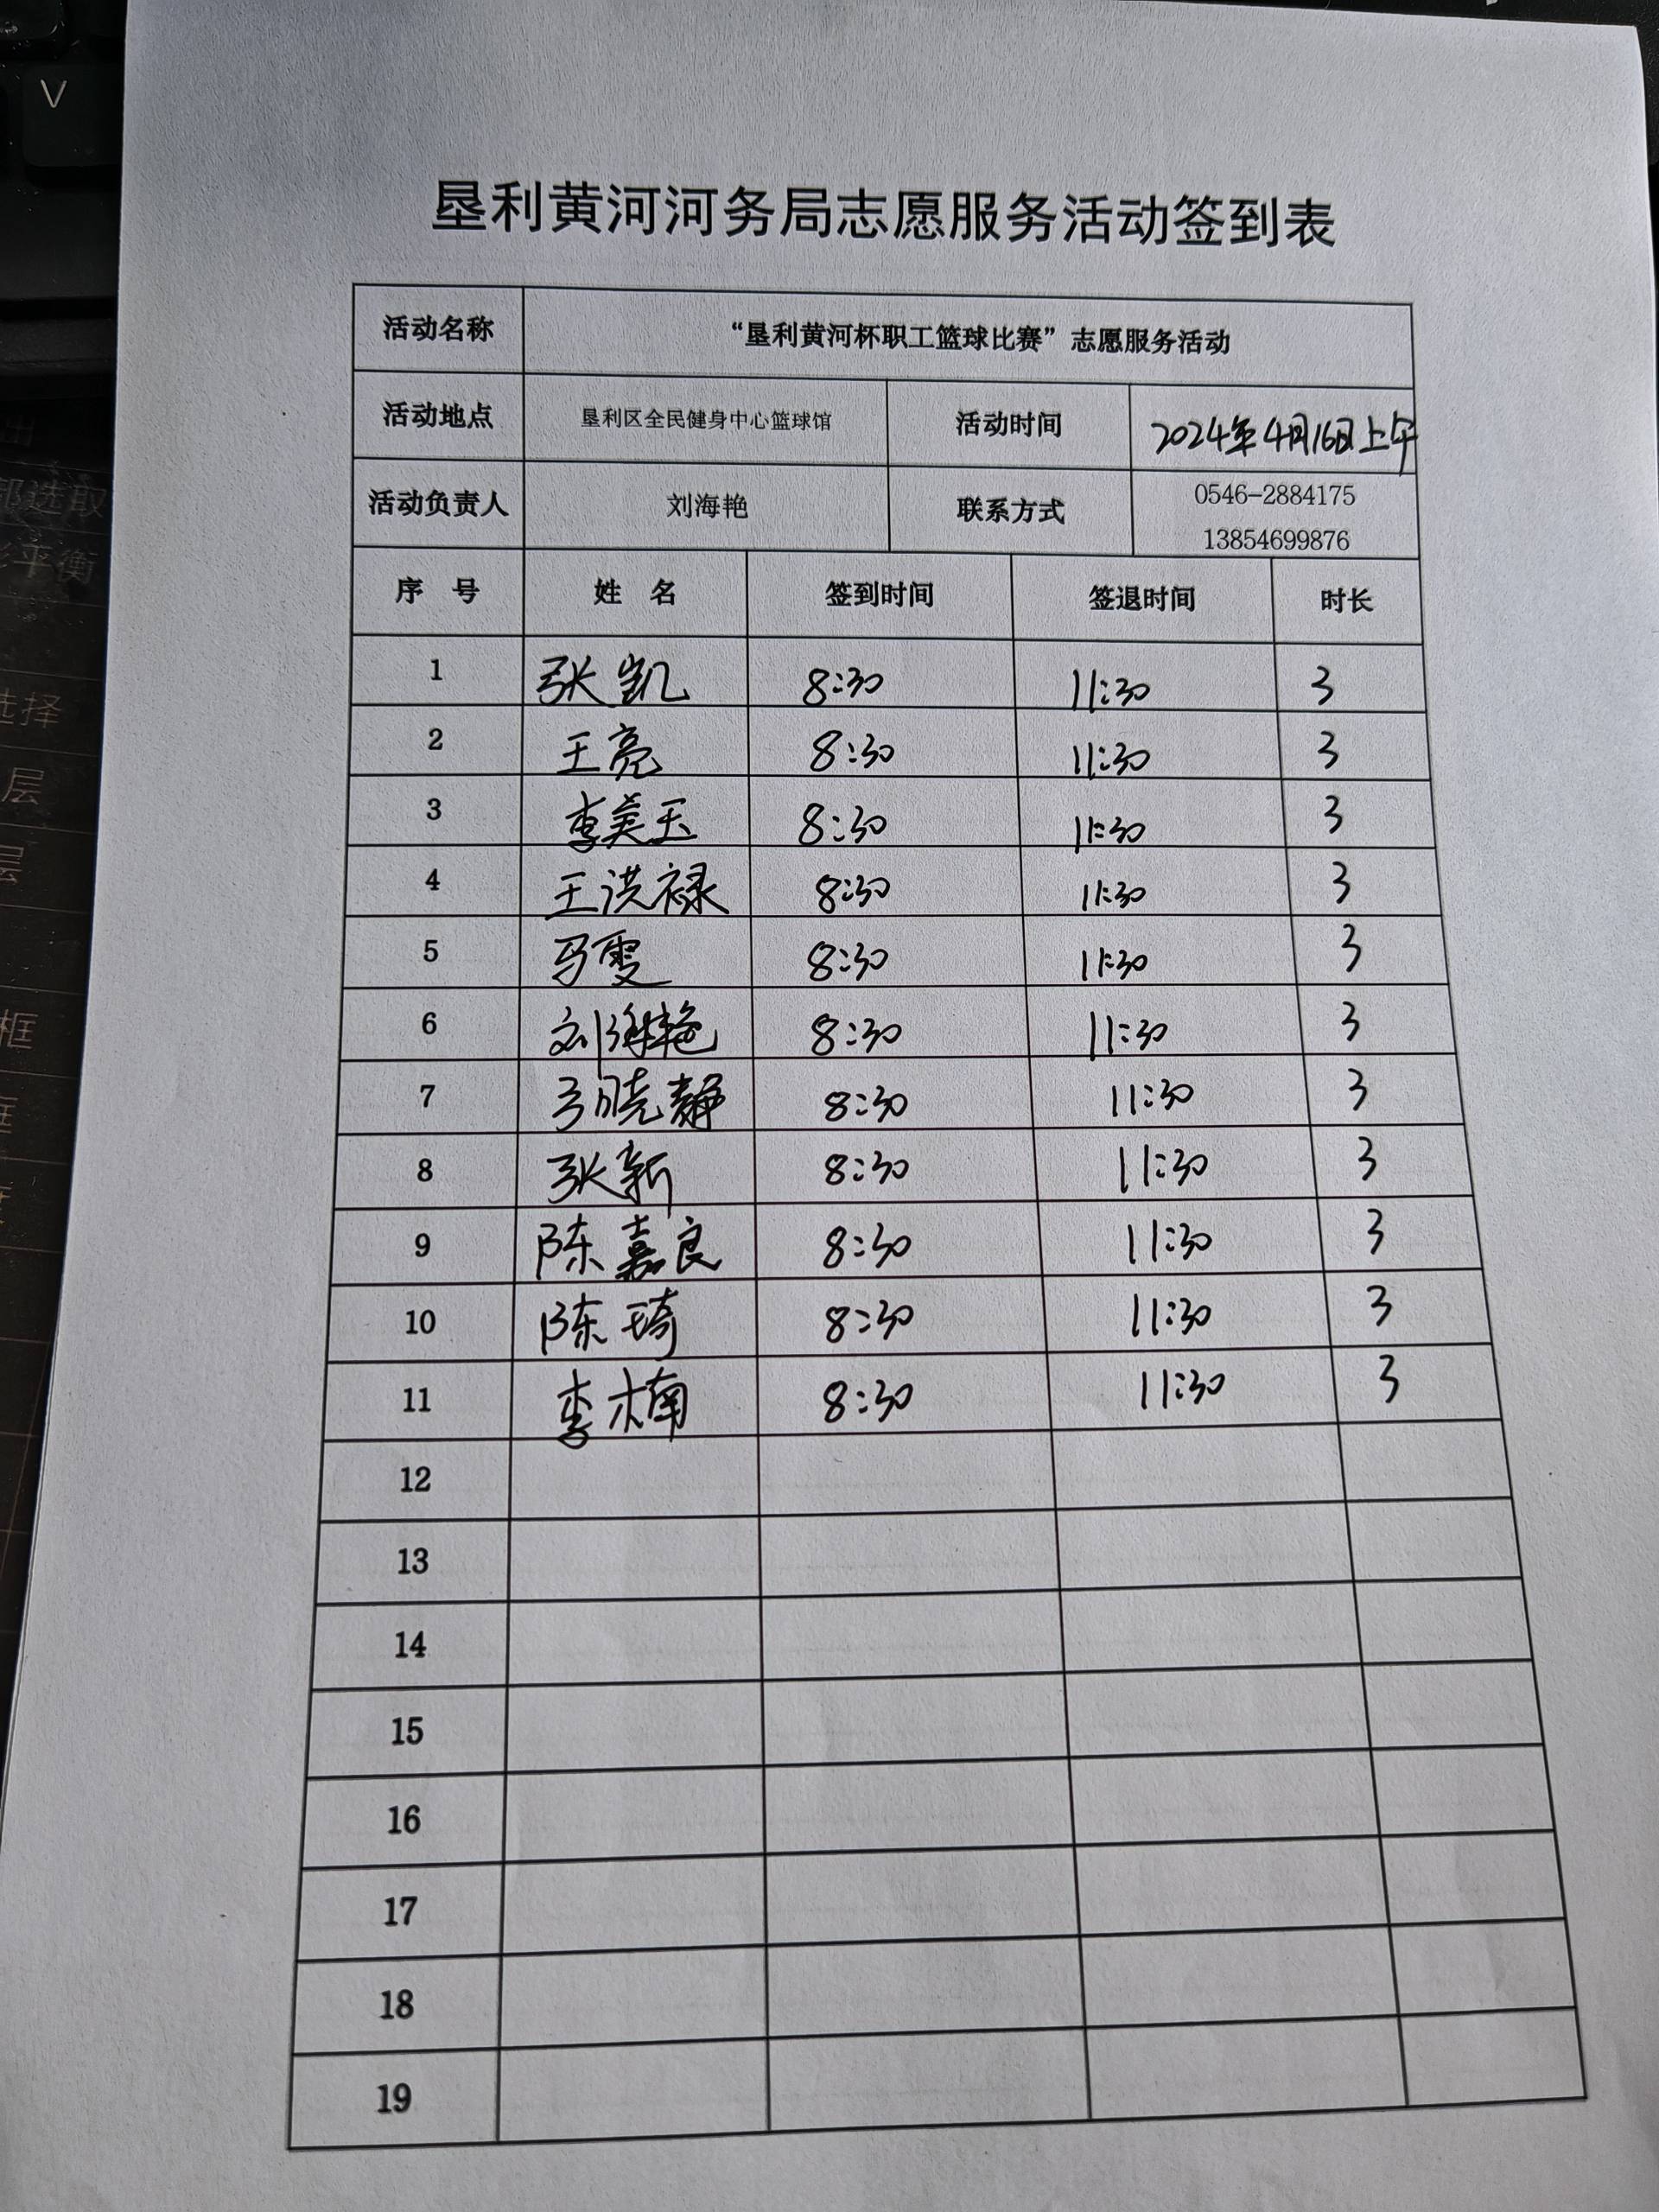 V
出
部选取
平衡
选择
层
层
框
框
垦利黄河河务局志愿服务活动签到表
活动名称 “垦利黄河杯职工篮球比赛”志愿服务活动
活动地点 垦利区全民健身中心篮球馆 活动时间 2024年4月16日上午
活动负责人 刘海艳 联系方式 0546-2884175
13854699876
序 号 姓 名 签到时间 签退时间 时长
1 张凯 8:30 11:30 3
2 王亮 8:30 11:30 3
3 李美玉 8:30 11:30 3
4 王洪禄 8:30 11:30 3
5 马雯 8:30 11:30 3
6 刘海艳 8:30 11:30 3
7 晓静 8:30 11:30 3
8 张新 8:30 11:30 3
9 陈嘉良 8:30 11:30 3
10 陈琦 8:30 11:30 3
11 李楠 8:30 11:30 3
12
13
14
15
16
17
18
19